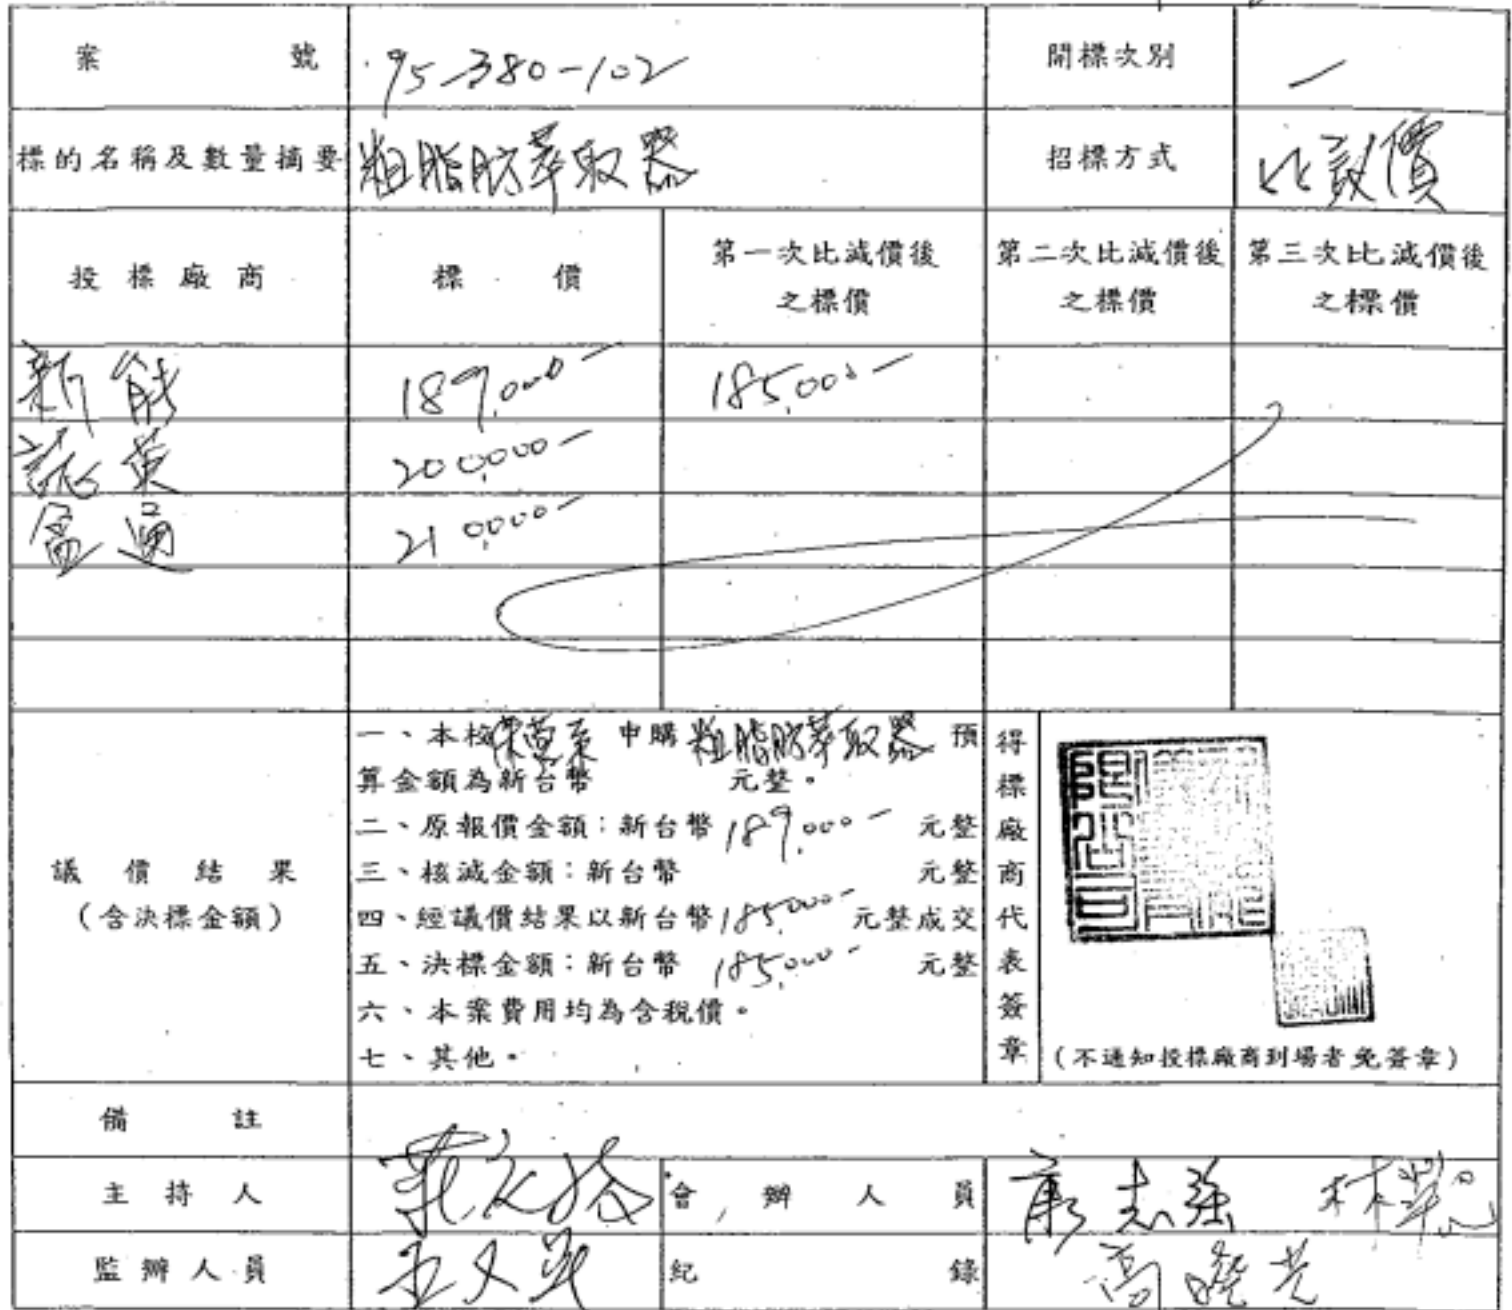 案號 95-380-102 開標次別 一
標的名稱及數量摘要 粗脂肪萃取器 招標方式 比議價
投標廠商 標價 第一次比減價後之標價 第二次比減價後之標價 第三次比減價後之標價
新能 189,000- 185,000-
英 200,000-
通 210,000-
議價結果
(含決標金額)
一、本校保營系 申購 粗脂肪萃取器 預
算金額為新台幣 元整。
二、原報價金額：新台幣 189,000- 元整
三、核減金額：新台幣 元整
四、經議價結果以新台幣 185,000- 元整成交
五、決標金額：新台幣 185,000- 元整
六、本案費用均為含稅價。
七、其他。
得標廠商代表簽章
(不通知投標廠商到場者免簽章)
備註
主持人 會辦人員 志強 林
監辦人員 紀錄